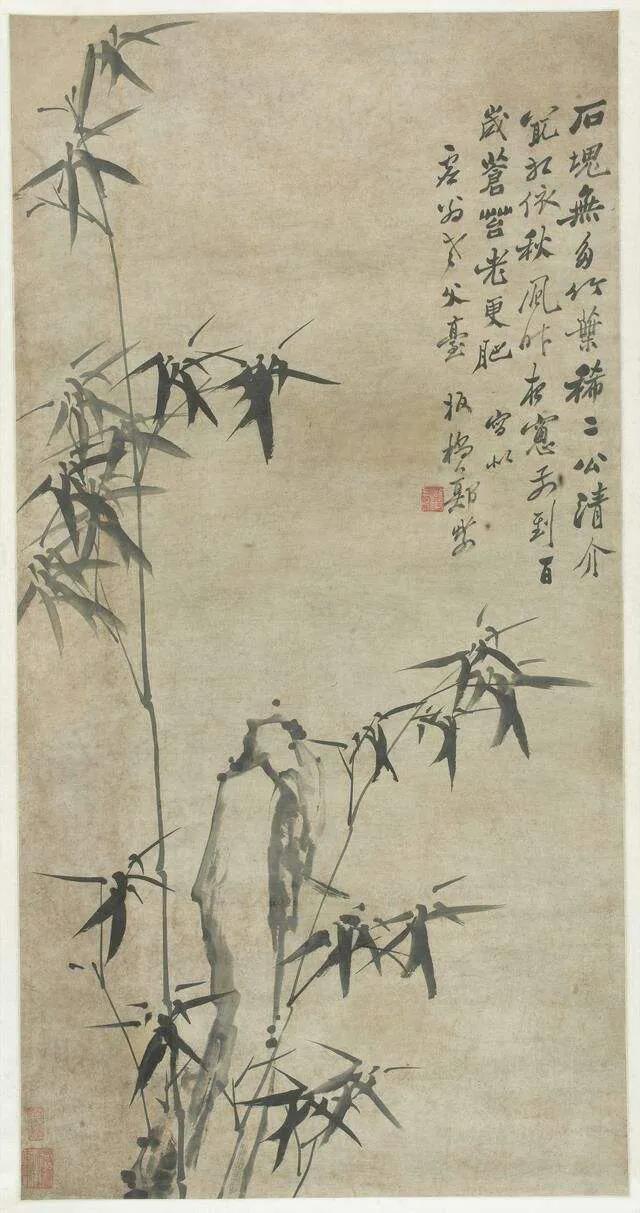 石塊無多竹葉稀二公清介
最相依秋風昨夜窻前到百
歲蒼苔老更肥 寫似
虛翁老父臺 板橋鄭燮